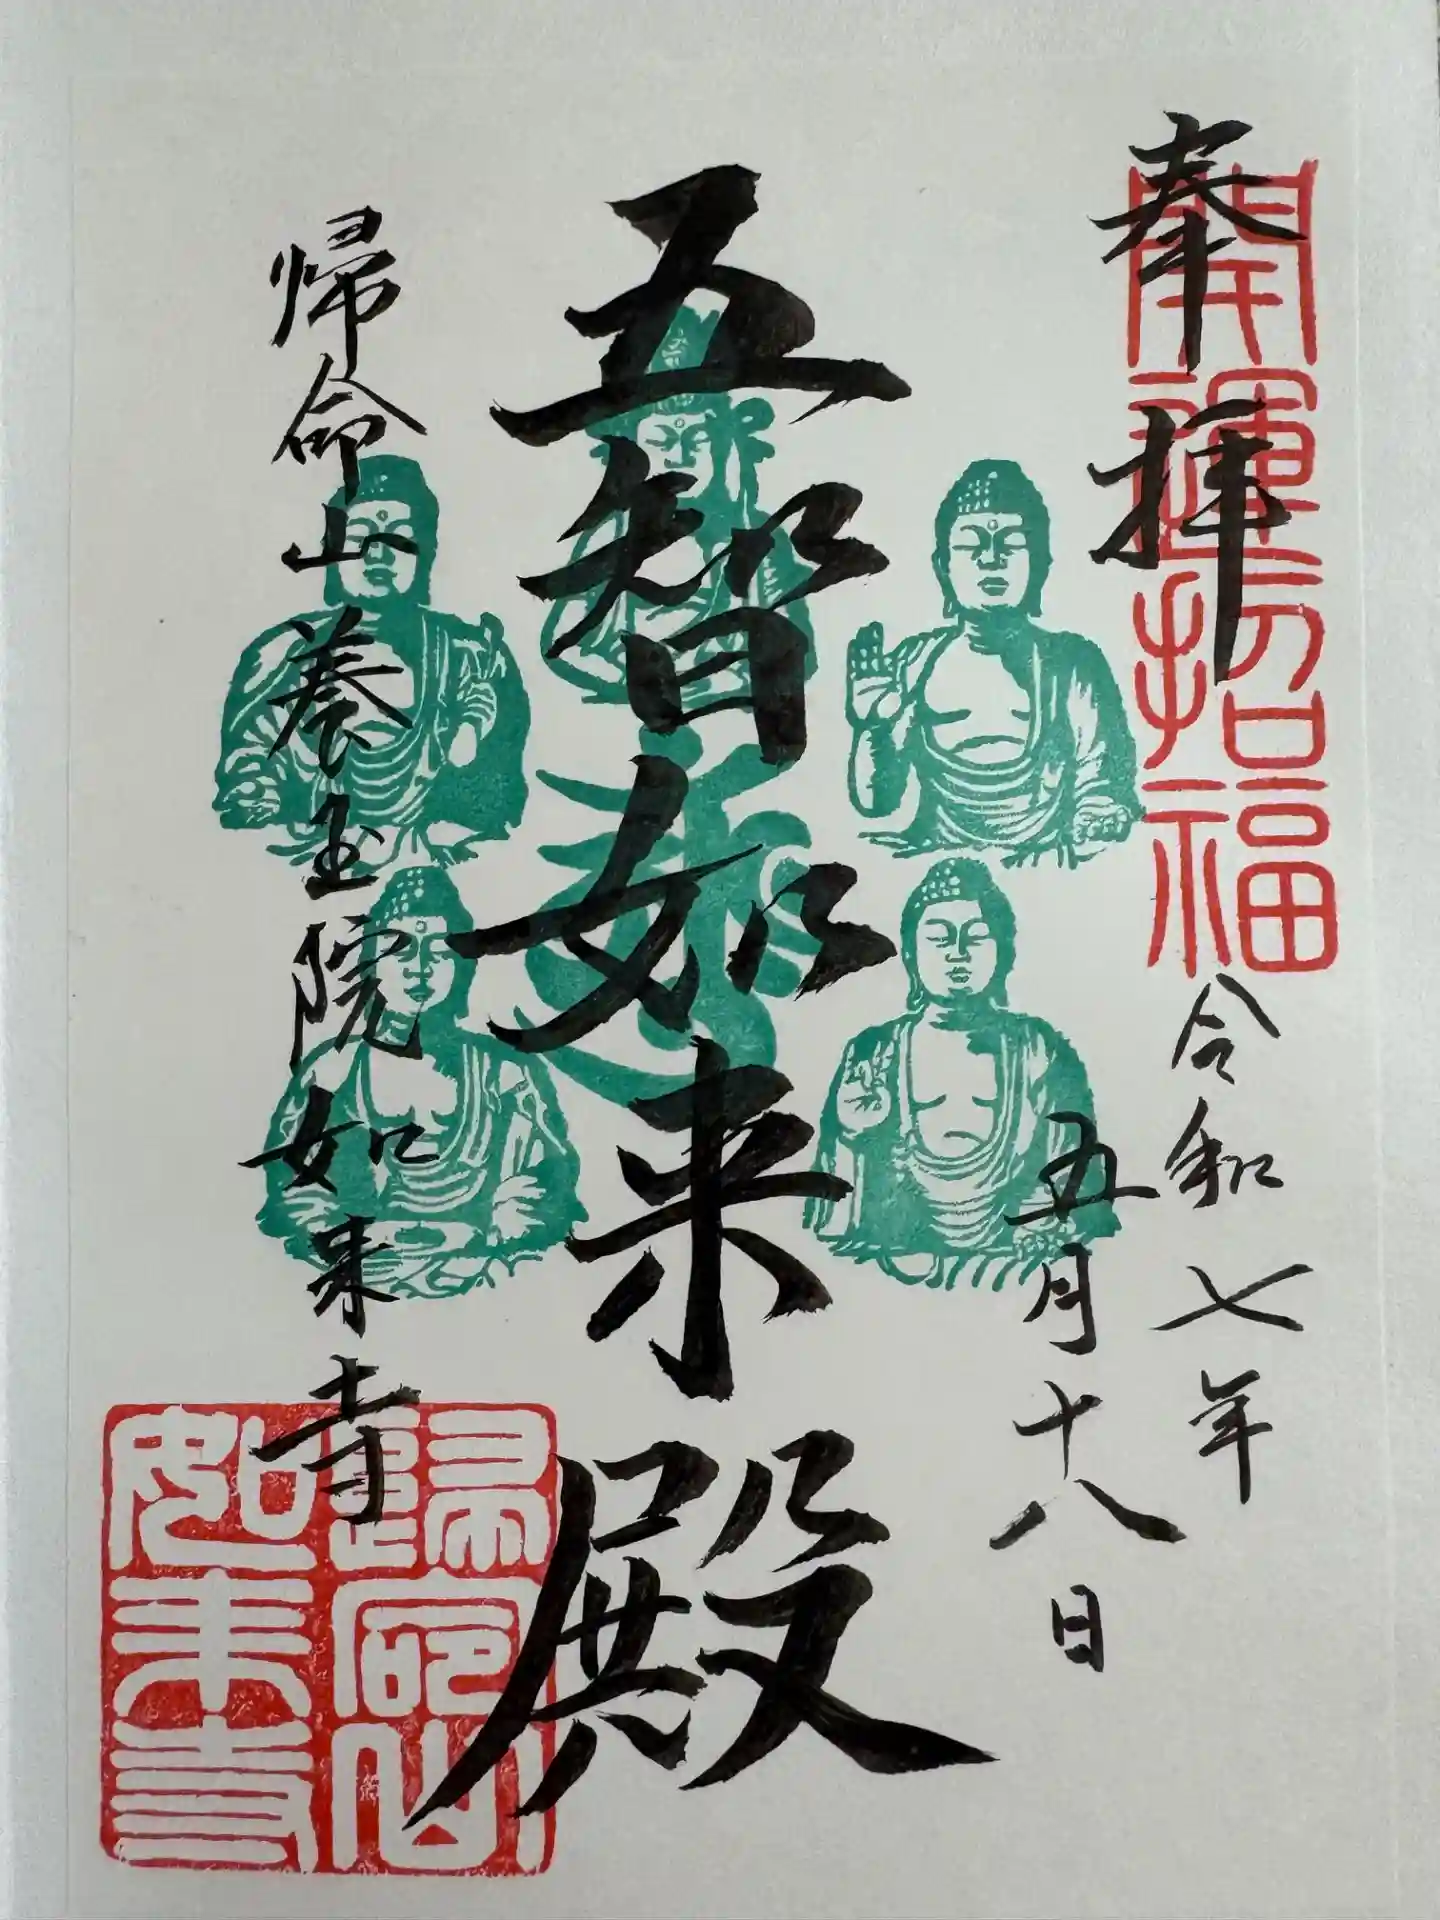 奉拝
開運招福
令和七年
五月十八日
五智如来殿
帰命山養玉院如来寺
歸命山
如来寺